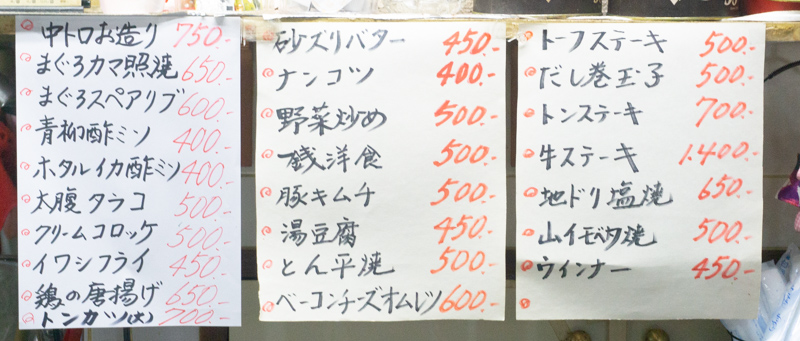 中トロお造り 750.-
まぐろカマ照焼 650.-
まぐろスペアリブ 600.-
青柳酢ミソ 400.-
ホタルイカ酢ミソ 400.-
太腹タラコ 500.-
クリームコロッケ 500.-
イワシフライ 450.-
鶏の唐揚げ 650.-
トンカツ(大) 700.-
砂ズリバター 450.-
ナンコツ 400.-
野菜炒め 500.-
一銭洋食 500.-
豚キムチ 500.-
湯豆腐 450.-
とん平焼 500.-
ベーコンチーズオムレツ 600.-
トーフステーキ 500.-
だし巻玉子 500.-
トンステーキ 700.-
牛ステーキ 1.400.-
地ドリ塩焼 650.-
山イモベタ焼 500.-
ウインナー 450.-